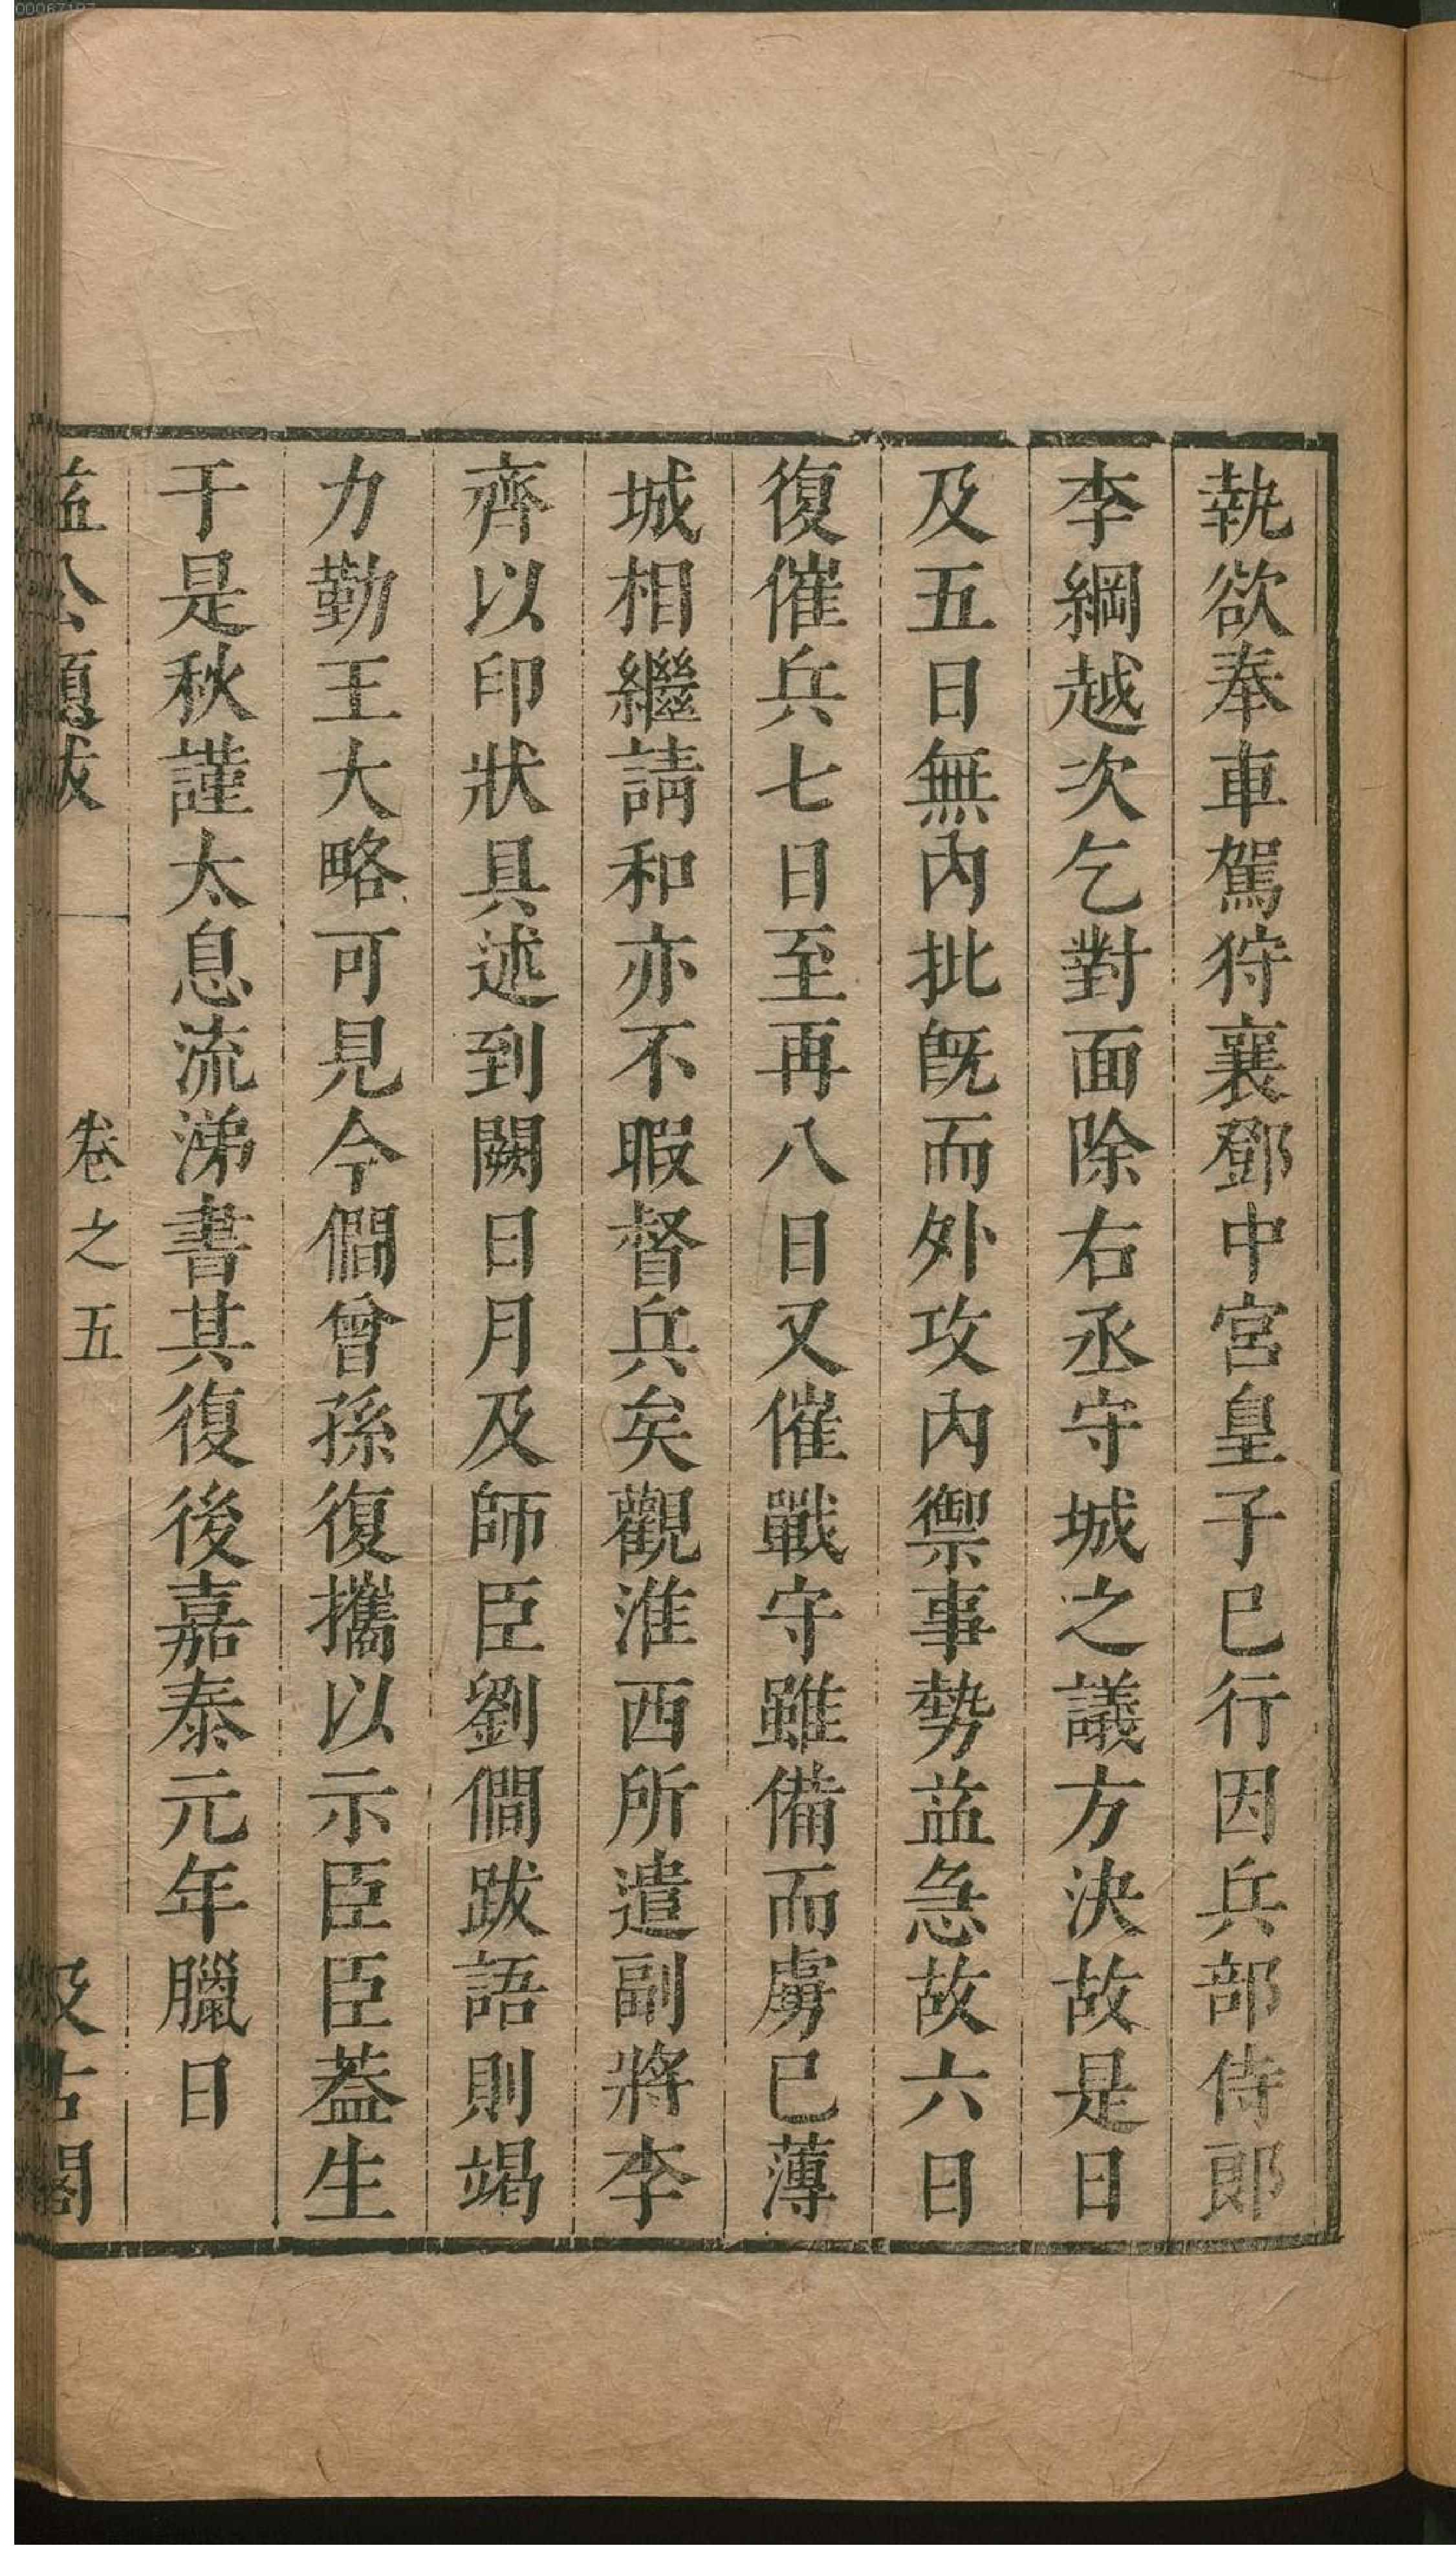 執欲奉車駕狩襄鄧中宮皇子巳行因兵部侍郎
李綱越次乞對面除右丞守城之議方決故是日
及五日無內批旣而外攻內禦事勢益急故六日
復催兵七日至再八日又催戰守雖備而虜巳薄
城相繼請和亦不暇督兵矣觀淮西所遣副將李
齊以印狀具述到闕日月及師臣劉僩跋語則竭
力勤王大略可見今僩曾孫復攜以示臣臣葢生
于是秋謹太息流涕書其復後嘉泰元年臘日
益公題跋 卷之五 汲古閣
00067197